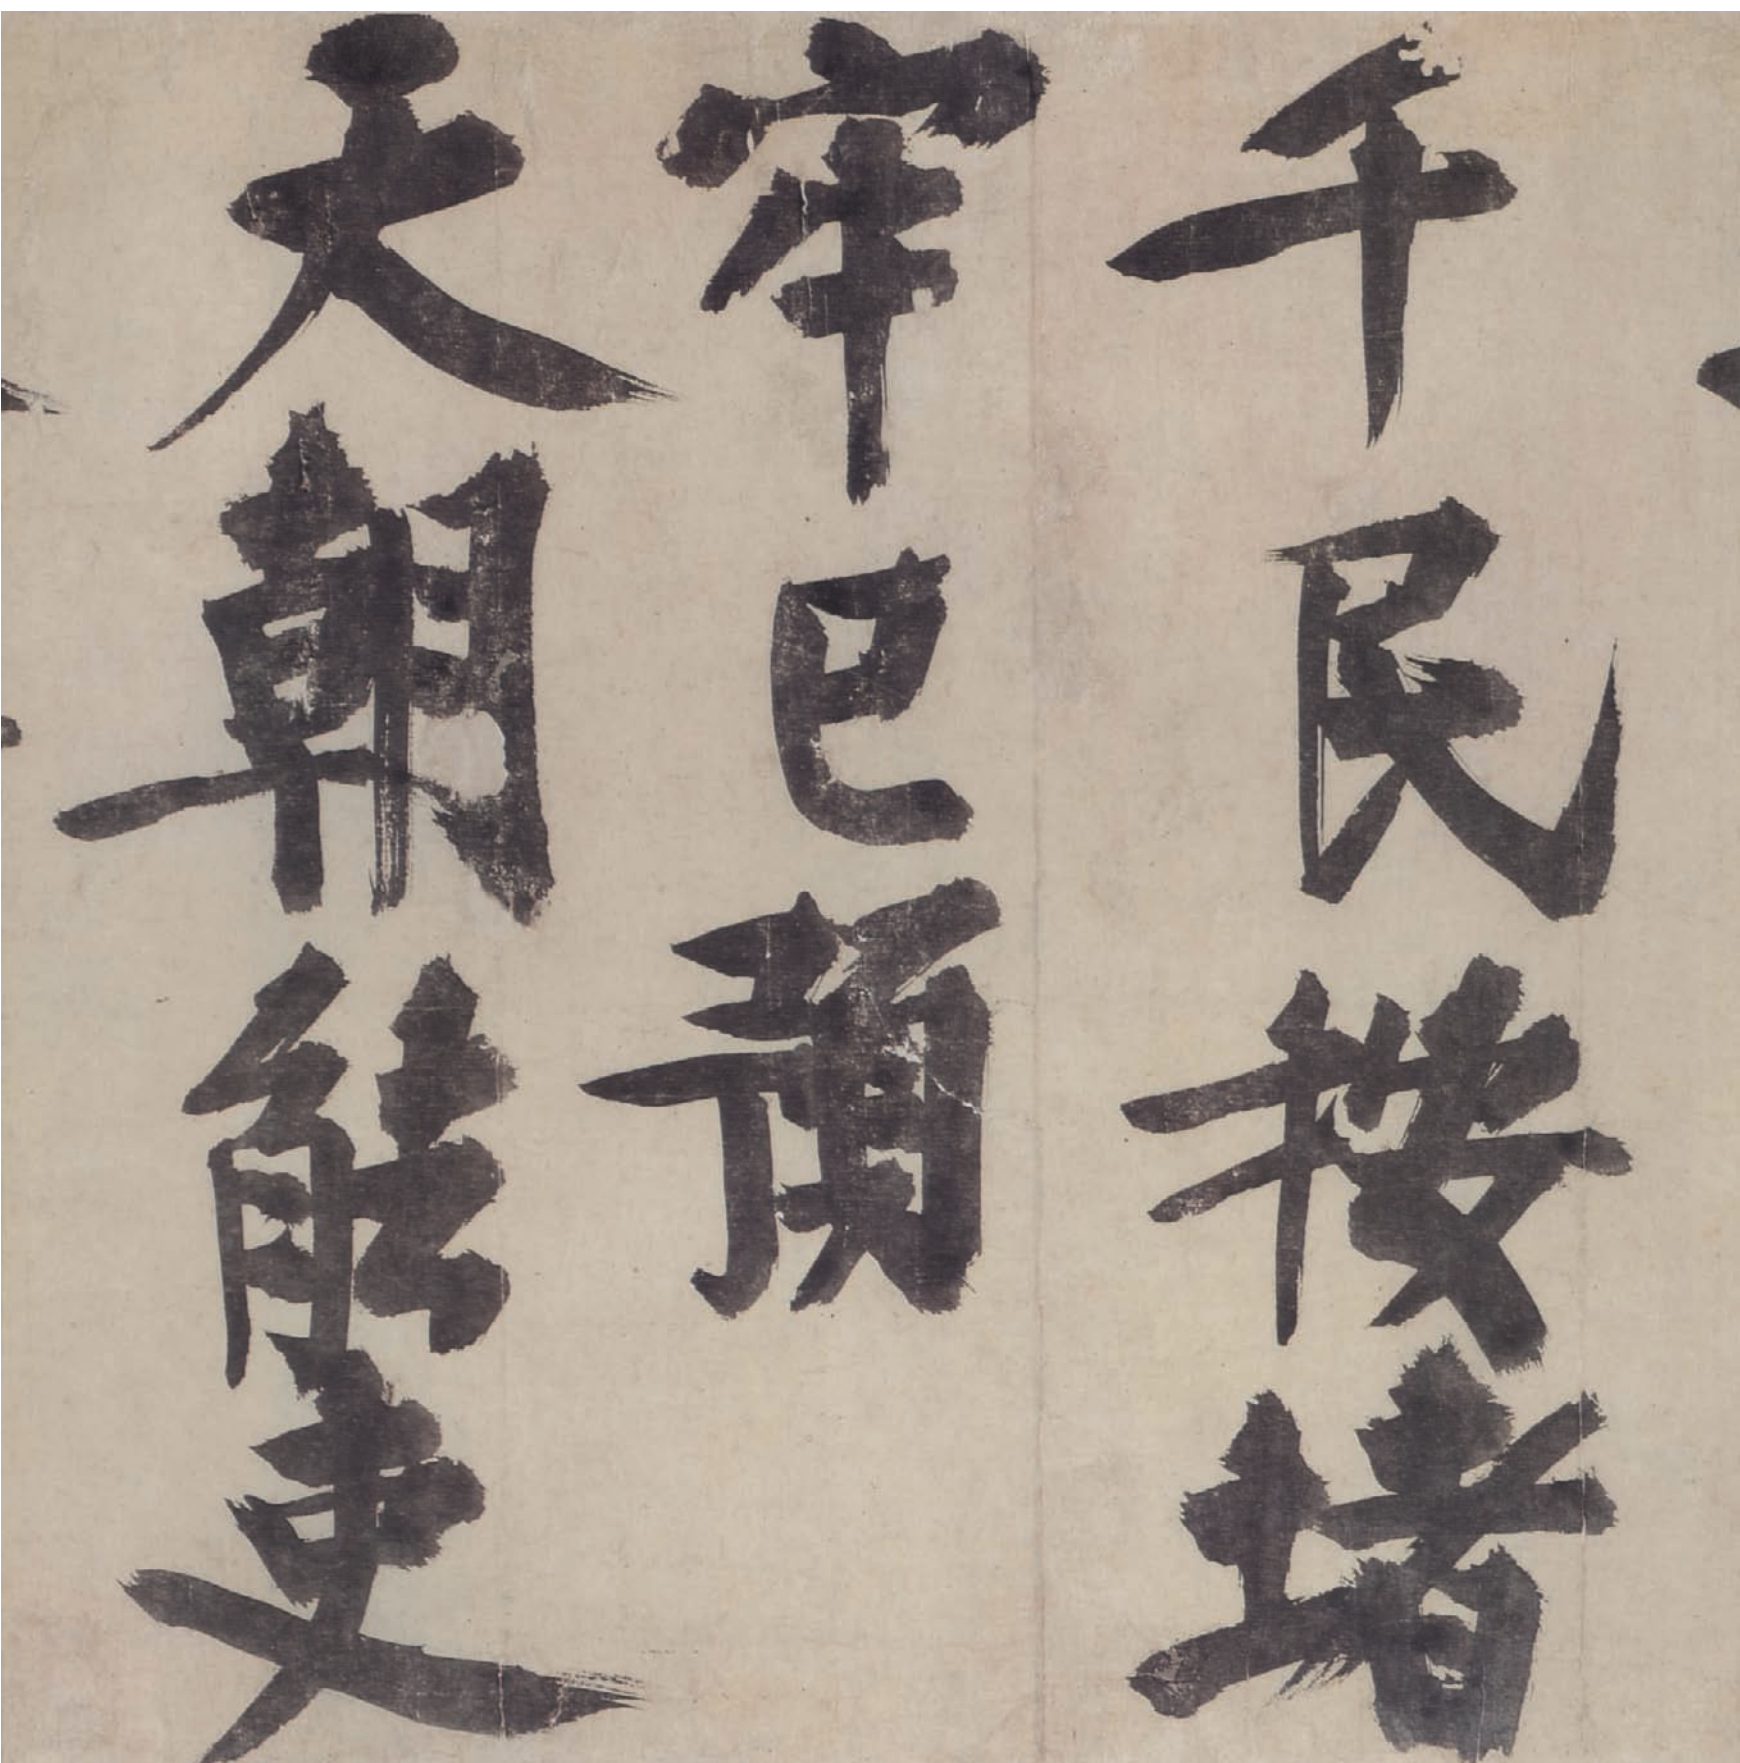 千民按堵
牢已預
天朝能吏